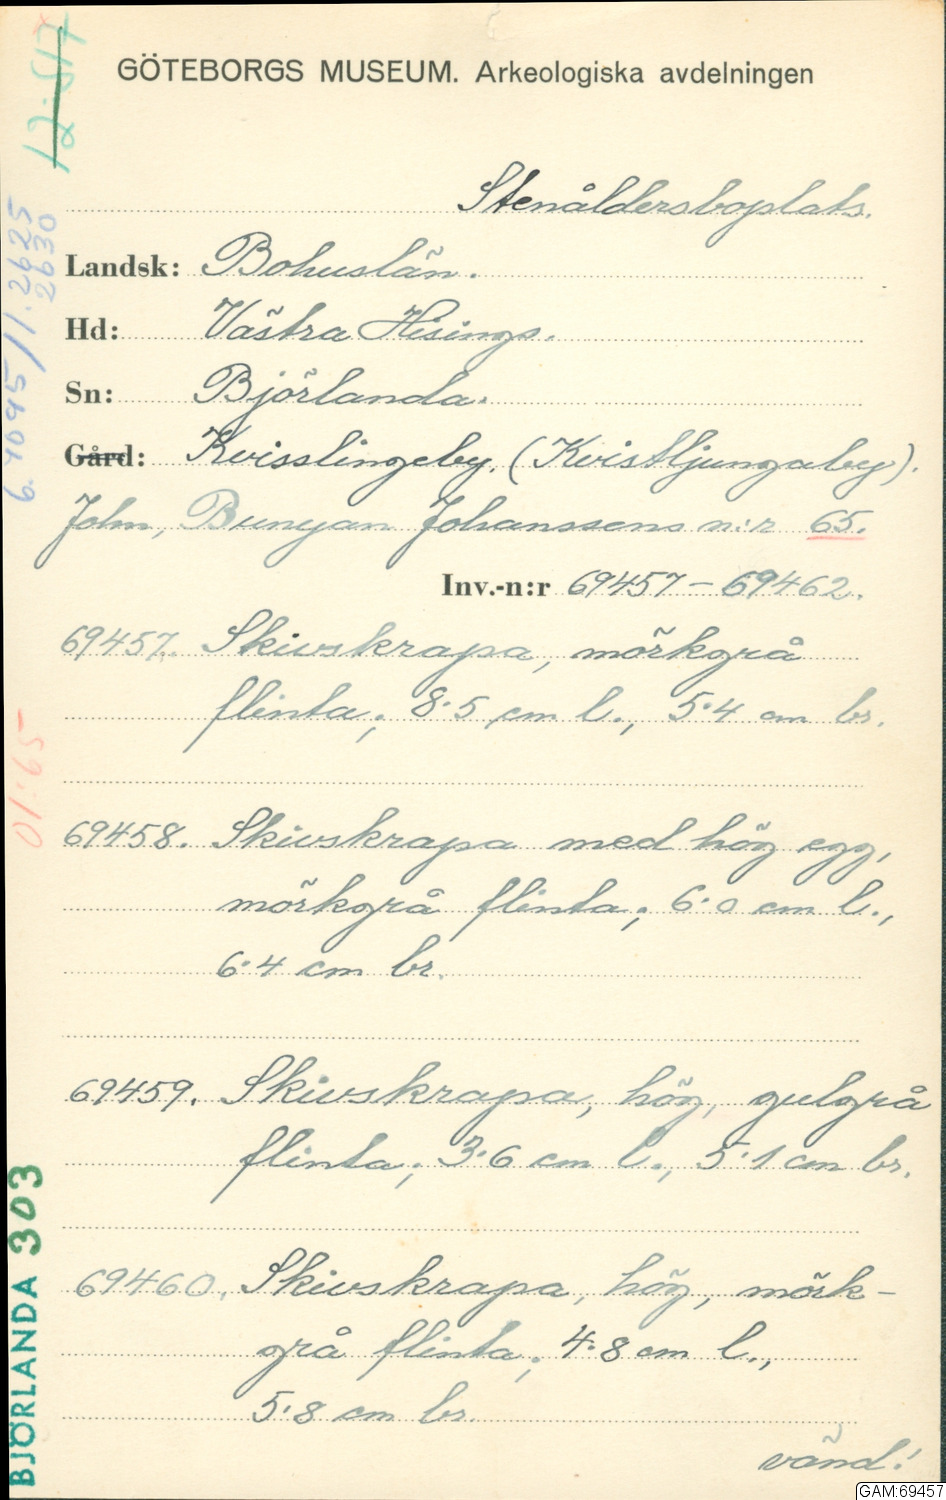 GÖTEBORGS MUSEUM. Arkeologiska avdelningen
Stenåldersboplats.
Landsk: Bohuslän.
Hd: Västra Hisings.
Sn: Björlanda.
Gård: Kvisslingeby. (Kvistljungaby).
John, Bunyan Johanssons n:r 65.
Inv.-n:r 69457 – 69462.
69457. Skivskrapa, mörkgrå
flinta; 8·5 cm l., 5·4 cm br.
69458. Skivskrapa med hög egg,
mörkgrå flinta; 6·0 cm l.,
6·4 cm br.
69459. Skivskrapa, hög, gulgrå
flinta; 3·6 cm l., 5·1 cm br.
69460. Skivskrapa, hög, mörk-
grå flinta; 4·8 cm l.,
5·8 cm br.
vänd!
12·517
6. 7095 / 1. 2625
2630
01:65
BJÖRLANDA 303
GAM:69457